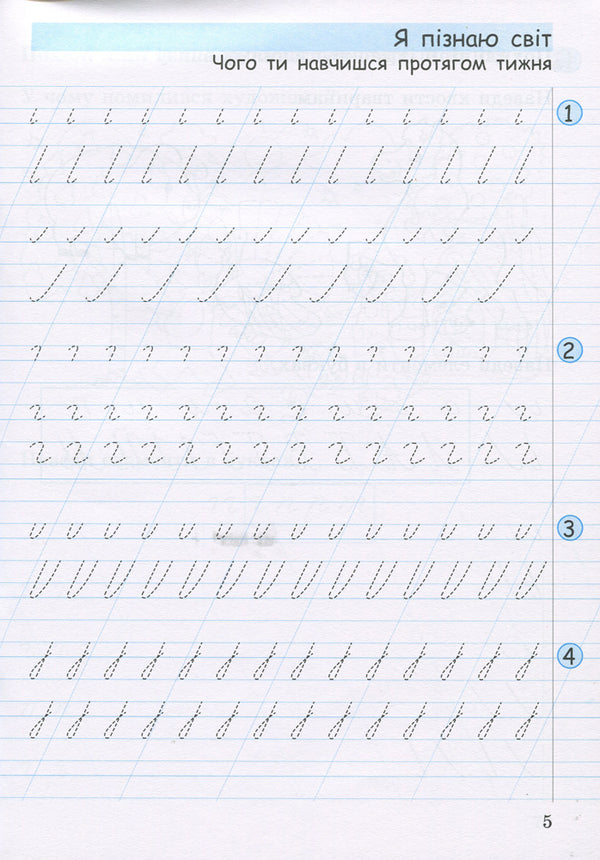 Я пізнаю світ
Чого ти навчишся протягом тижня
1
2
3
4
5